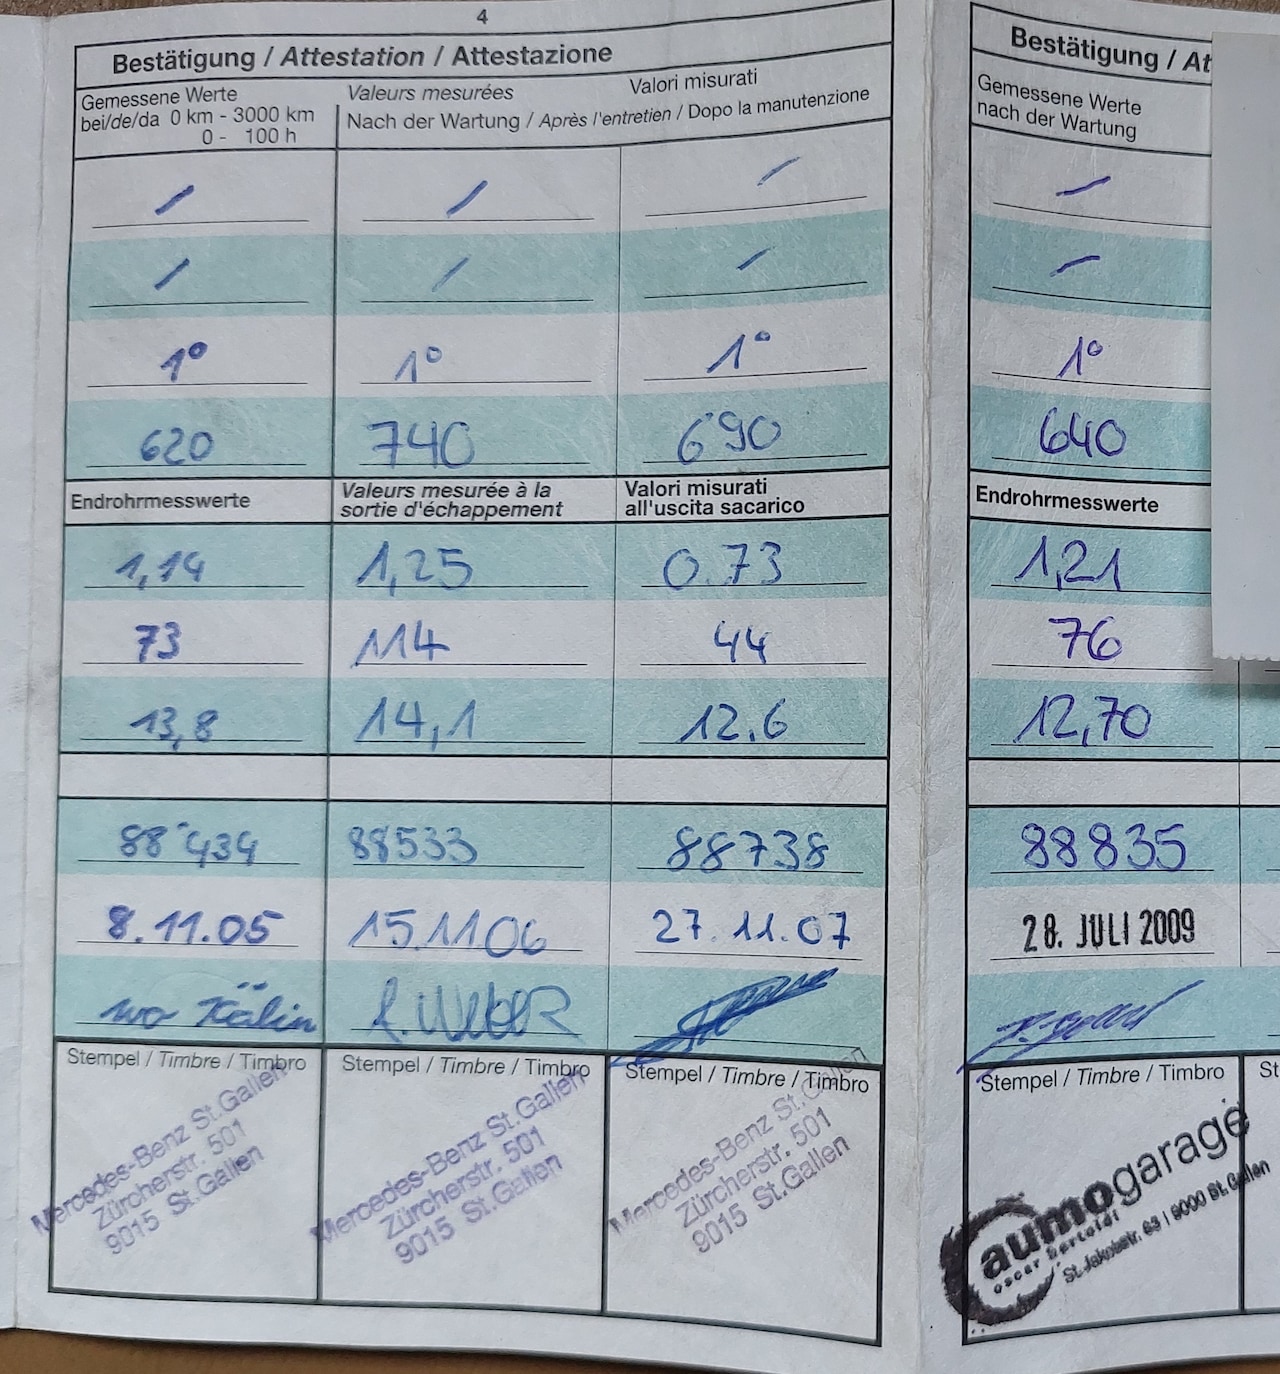 4
Bestätigung / Attestation / Attestazione
Gemessene Werte
bei/de/da 0 km - 3000 km
0 - 100 h
Valeurs mesurées
Valori misurati
Nach der Wartung / Après l'entretien / Dopo la manutenzione
1° 1° 1°
620 740 690
Endrohrmesswerte
Valeurs mesurée à la
sortie d'échappement
Valori misurati
all'uscita sacarico
1,14 1,25 0.73
73 114 44
13,8 14,1 12.6
88'434 88533 88738
8.11.05 15.11 06 27.11.07
Ivo Kälin
R. Weber
Stempel / Timbre / Timbro
Mercedes-Benz St.Gallen
Zürcherstr. 501
9015 St.Gallen
Stempel / Timbre / Timbro
Mercedes-Benz St.Gallen
Zürcherstr. 501
9015 St.Gallen
Stempel / Timbre / Timbro
Mercedes-Benz St.Gallen
Zürcherstr. 501
9015 St.Gallen
Bestätigung / At
Gemessene Werte
nach der Wartung
1°
640
Endrohrmesswerte
1,21
76
12,70
88835
28. JULI 2009
Stempel / Timbre / Timbro
aumogarage
oscar bertoldi
St.Jakobstr. 63 | 9000 St.Gallen
St